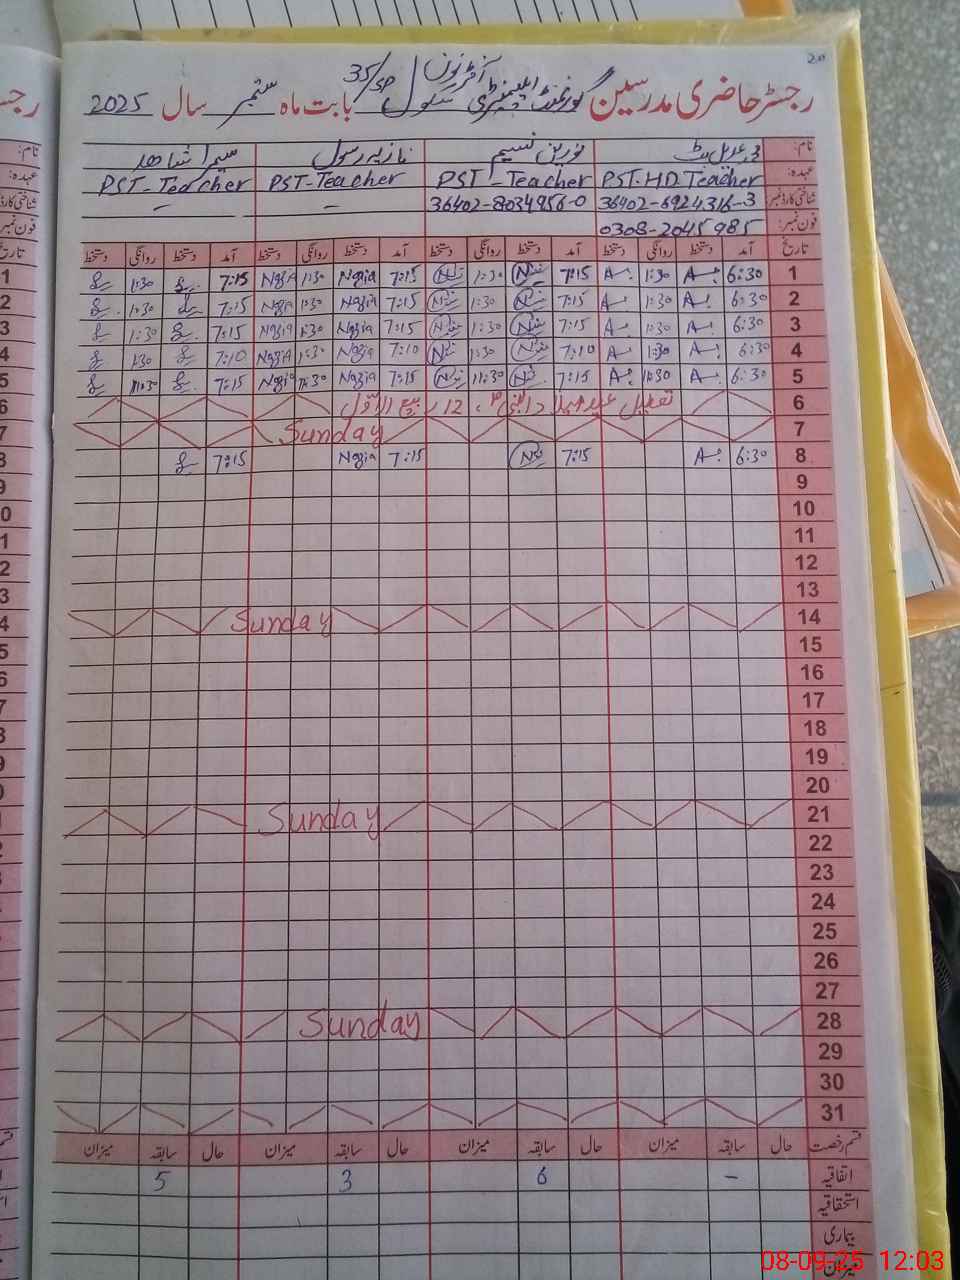 20
رجسٹر حاضری مدرسین گورنمنٹ ایلیمنٹری سکول 35/SP آفٹرنون بابت ماہ ستمبر سال 2025
نام: نورین نسیم نازیہ رسول سمیرا شاھد
عہدہ: PST.HD Teacher PST-Teacher PST-Teacher PST-Teacher
شناختی کارڈ نمبر 36402-6924316-3 36402-8034956-0 - -
فون نمبر: 0308-2045985
تاریخ آمد دستخط روانگی دستخط آمد دستخط روانگی دستخط آمد دستخط روانگی دستخط آمد دستخط روانگی دستخط
1 6:30 1:30 7:15 1:30 7:15 Nazia 1:30 Nazia 7:15 1:30
2 6:30 1:30 7:15 1:30 7:15 Nazia 1:30 Nazia 7:15 1:30
3 6:30 1:30 7:15 1:30 7:15 Nazia 1:30 Nazia 7:15 1:30
4 6:30 1:30 7:10 1:30 7:10 Nazia 1:30 Nazia 7:10 1:30
5 6:30 11:30 7:15 11:30 7:15 Nazia 11:30 Nazia 7:15 11:30
6 تعطیل عید میلاد النبیؐ، 12 ربیع الاوّل
7 Sunday
8 6:30 7:15 7:15 Nazia 7:15
9
10
11
12
13
14 Sunday
15
16
17
18
19
20
21 Sunday
22
23
24
25
26
27
28 Sunday
29
30
31
قسم رخصت حال سابقہ میزان حال سابقہ میزان حال سابقہ میزان حال سابقہ میزان
اتفاقیہ - 6 3 5
استحقاقیہ
بیماری
میزان
08-09-25 12:03